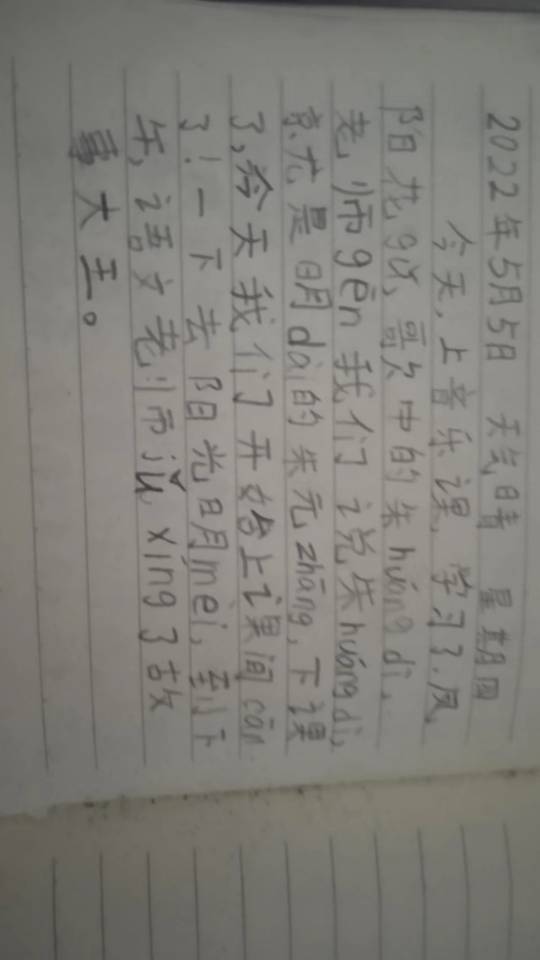 2022年5月5日 天气晴 星期四
今天,上音乐课,学习了.凤
阳花gǔ,歌欠中的朱huáng di,
老师gēn我们说朱huáng di,
京尤是明dài的朱元zhāng,下课
了,今天我们开始上课间cāo
了!一下去阳光明mèi,到下
午,语文老师jǔ xíng了故
事大王。